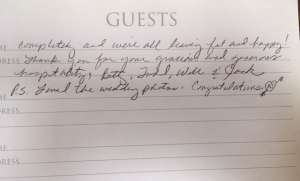 GUESTS
completely and we're all living fat and happy!
Thank you for your gracious and generous
hospitality,
Will & Jack
P.S. Loved the wedding photos. Congratulations!
ME
DRESS
ME
DRESS